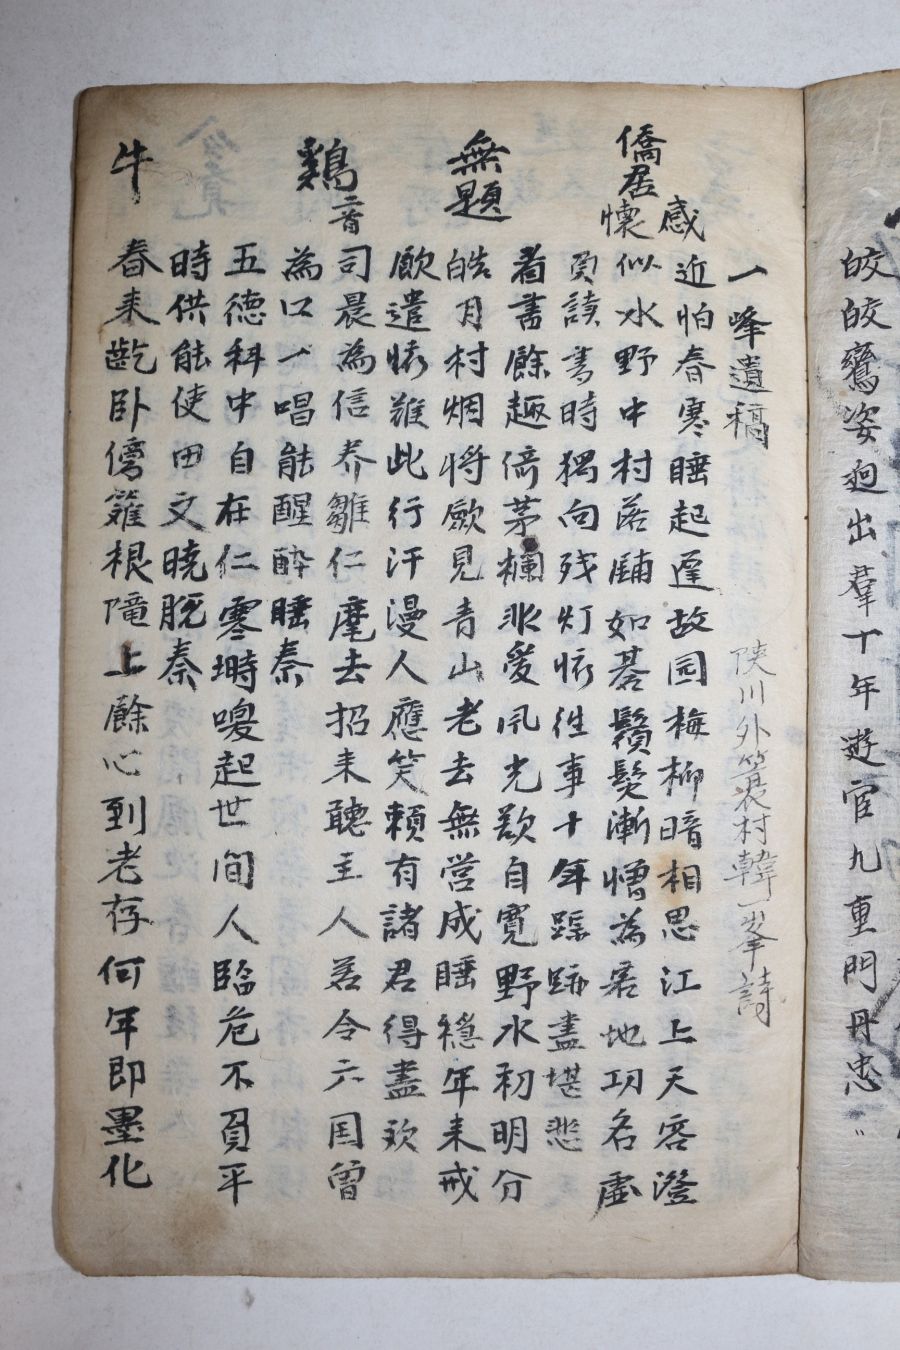 皎皎鸞姿迥出羣十年遊宦九重門丹忠
一峰遺稿
陜川外蓑村韓一峯詩
僑居感懷
近怕春寒睡起遲故园梅柳暗相思江上天容澄
似水野中村落圃如碁鬚髮漸憎為客地功名虛
負讀書時獨向残灯恠徃事十年蹤跡盡堪悲
無題
看書餘趣倚茅欄非愛風光欲自寬野水初明分
皓月村烟將歛見青山老去無営成睡穩年来戒
飮遣恠難此行汗漫人應笑賴有諸君得盡欢
鷄二首
司晨為信养雛仁麾去招来聽主人若令六国曾
為口一唱能醒醉睡秦
五德科中自在仁零塒喚起世间人臨危不負平
時供能使田文曉脫秦
牛
春来齕卧傍籬根隴上餘心到老存何年即墨化